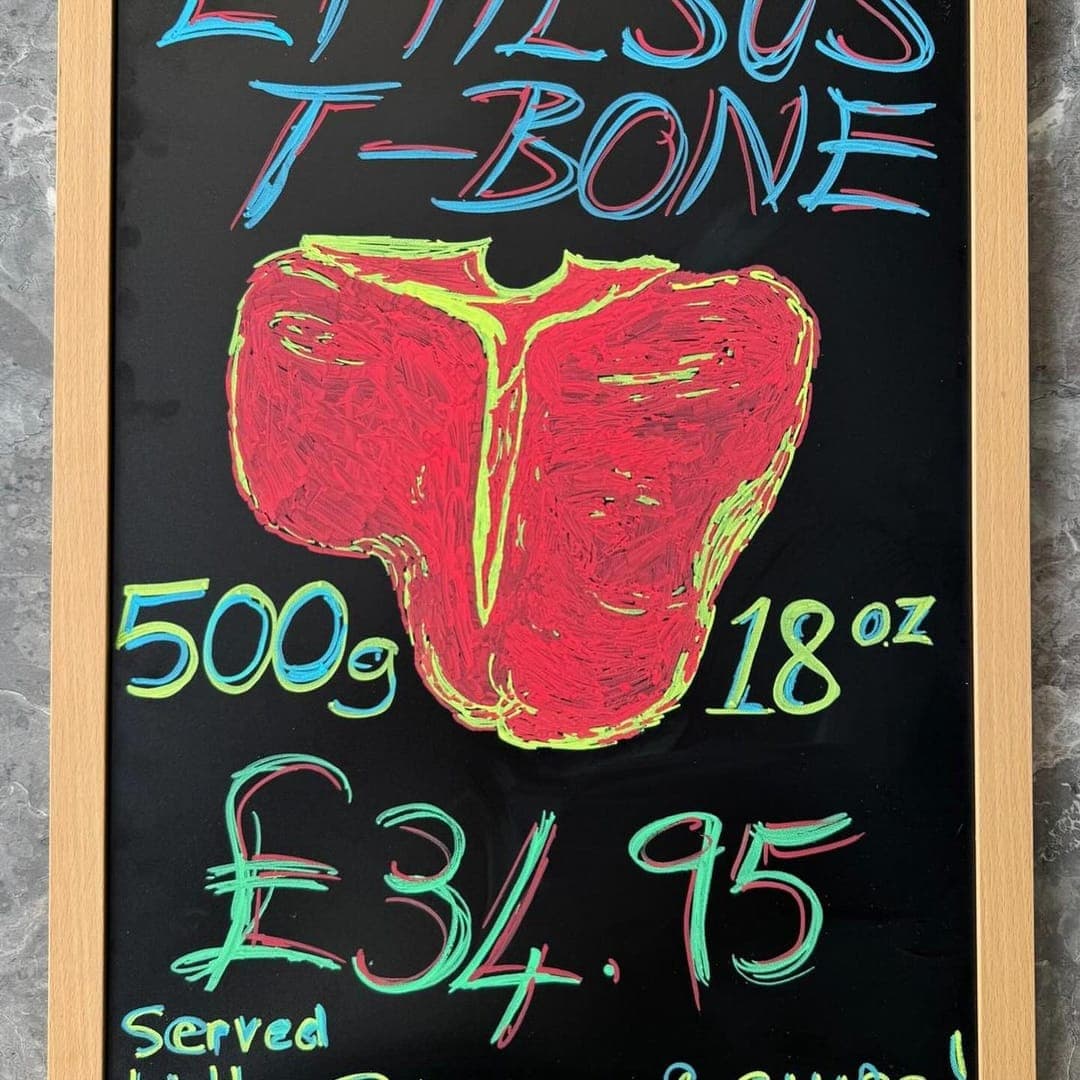 EPHESUS
T-BONE
500g
18 oz
£34.95
Served